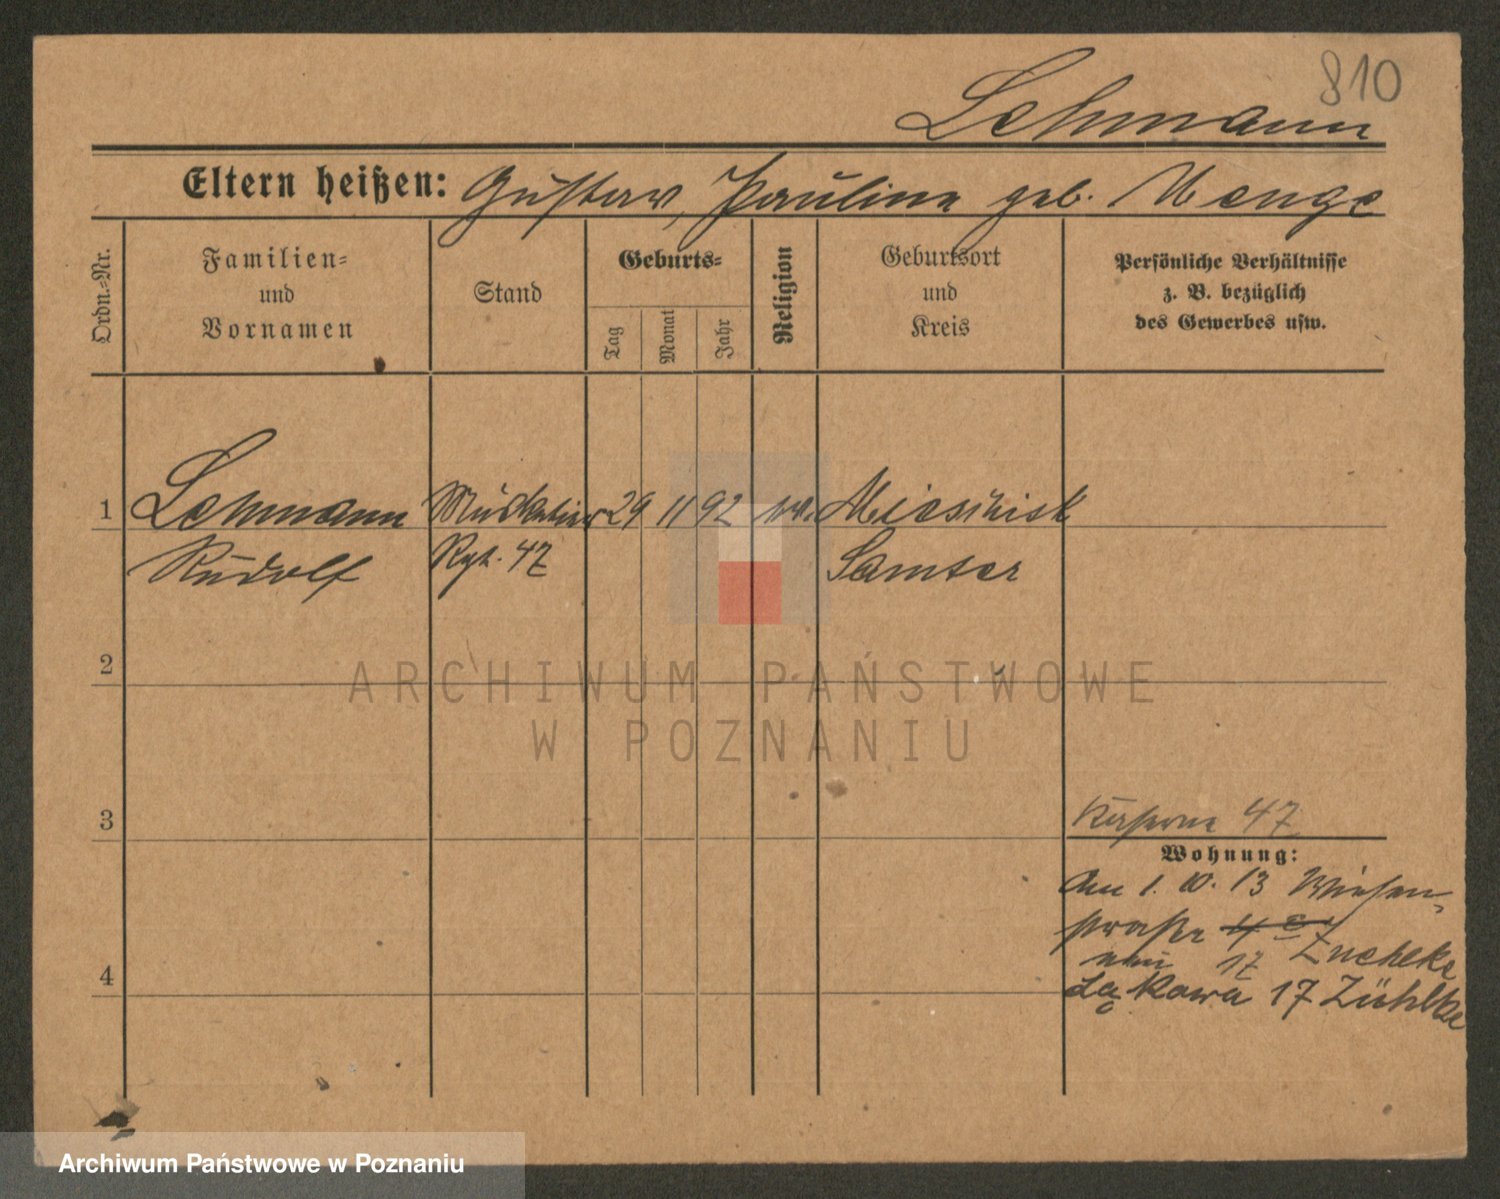 810
Lehmann
Eltern heißen: Gustav, Pauline geb. Menge
Ordn.=Nr.
Familien=
und
Vornamen
Stand
Geburts=
Tag
Monat
Jahr
Religion
Geburtsort
und
Kreis
Persönliche Verhältnisse
z. B. bezüglich
des Gewerbes usw.
1
Lehmann
Rudolf
Musketier
Rgt. 47
29
11
92
ev.
Samter
2
3
4
Kaserne 47
Wohnung:
Am 1. 10. 13 Wiesen-
straße
neu 17 Zuehlke
Łąkowa 17 Zühlke
ARCHIWUM PAŃSTWOWE
W POZNANIU
Archiwum Państwowe w Poznaniu